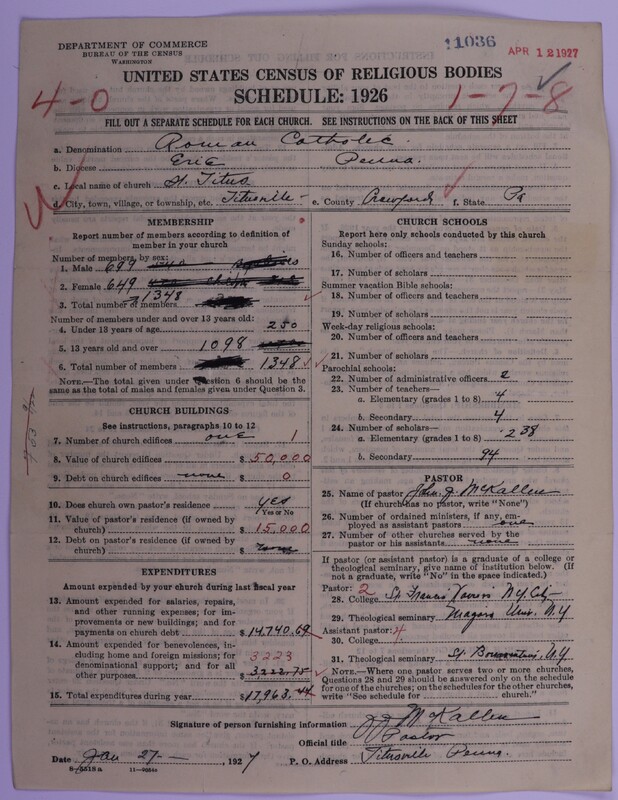 DEPARTMENT OF COMMERCE
BUREAU OF THE CENSUS
WASHINGTON
11036
APR 12 1927
UNITED STATES CENSUS OF RELIGIOUS BODIES
SCHEDULE: 1926
4-0
1-7-8
FILL OUT A SEPARATE SCHEDULE FOR EACH CHURCH. SEE INSTRUCTIONS ON THE BACK OF THIS SHEET
a. Denomination Roman Catholic
b. Diocese Erie Penna.
c. Local name of church St. Titus
d. City, town, village, or township, etc. Titusville e. County Crawford f. State Pa
MEMBERSHIP
Report number of members according to definition of member in your church
Number of members by sex:
1. Male 699
2. Female 649
3. Total number of members 1348
Number of members under and over 13 years old:
4. Under 13 years of age 250
5. 13 years old and over 1098
6. Total number of members 1348
NOTE.—The total given under Question 6 should be the same as the total of males and females given under Question 3.
CHURCH BUILDINGS
See instructions, paragraphs 10 to 12
7. Number of church edifices one 1
8. Value of church edifices $ 50,000
9. Debt on church edifices none $ 0
10. Does church own pastor's residence yes
Yes or No
11. Value of pastor's residence (if owned by church) $ 15,000
12. Debt on pastor's residence (if owned by church) $ none
EXPENDITURES
Amount expended by your church during last fiscal year
13. Amount expended for salaries, repairs, and other running expenses; for improvements or new buildings; and for payments on church debt $ 14,740.69
14. Amount expended for benevolences, including home and foreign missions; for denominational support; and for all other purposes 3223 $ 3222.75
15. Total expenditures during year $ 17,963.44
CHURCH SCHOOLS
Report here only schools conducted by this church
Sunday schools:
16. Number of officers and teachers
17. Number of scholars
Summer vacation Bible schools:
18. Number of officers and teachers
19. Number of scholars
Week-day religious schools:
20. Number of officers and teachers
21. Number of scholars
Parochial schools:
22. Number of administrative officers 2
23. Number of teachers—
a. Elementary (grades 1 to 8) 4
b. Secondary 4
24. Number of scholars—
a. Elementary (grades 1 to 8) 238
b. Secondary 94
PASTOR
25. Name of pastor John J McKallen
(If church has no pastor, write "None")
26. Number of ordained ministers, if any, employed as assistant pastors one
27. Number of other churches served by the pastor or his assistants none
If pastor (or assistant pastor) is a graduate of a college or theological seminary, give name of institution below. (If not a graduate, write "No" in the space indicated.)
Pastor: 2
28. College St Francis Xavier N.Y. City
29. Theological seminary Niagara Univ. N.Y
Assistant pastor:
30. College
31. Theological seminary St Bonaventure, N.Y
NOTE.—Where one pastor serves two or more churches, Questions 28 and 29 should be answered only on the schedule for one of the churches; on the schedules for the other churches, write "See schedule for church."
Signature of person furnishing information J J McKallen
Official title Pastor
Date Jan 27, 1927 P. O. Address Titusville Penna.
8-5518a